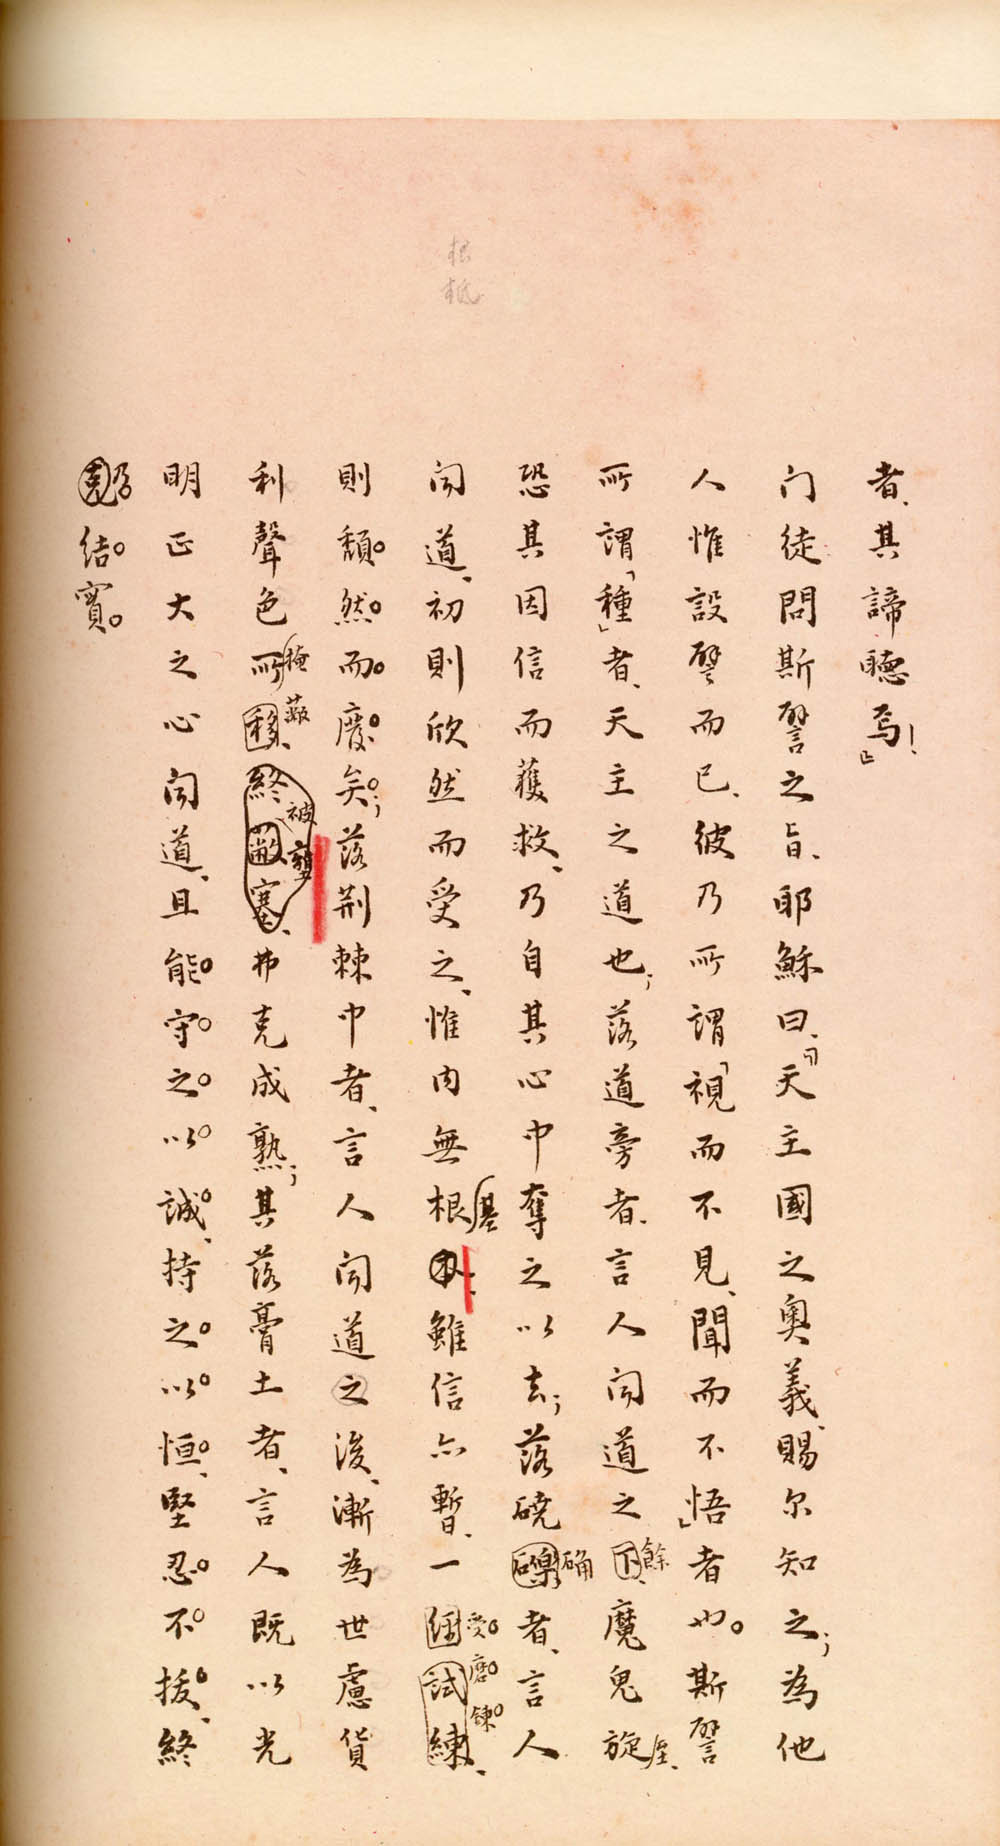 根柢
者、其諦聽焉！』
门徒問斯譬之旨、耶穌曰、『天主國之奧義、賜尔知之；為他
人惟設譬而已、彼乃所謂「視而不見、聞而不悟」者也。斯譬
所謂「種」者、天主之道也；落道旁者、言人闻道之下餘、魔鬼旋至、
恐其因信而獲救、乃自其心中奪之以去；落磽礫确者、言人
闻道、初則欣然而受之、惟内無根基本、雖信亦暫、一經試練、
受磨鍊
則頹然而廢矣；落荆棘中者、言人闻道之後、漸為世慮貨
利聲色所移、終敝塞、弗克成熟；其落膏土者、言人既以光
掩蔽
被壅
明正大之心闻道、且能守之以誠、持之以恒、堅忍不拔、終
克乃結實。